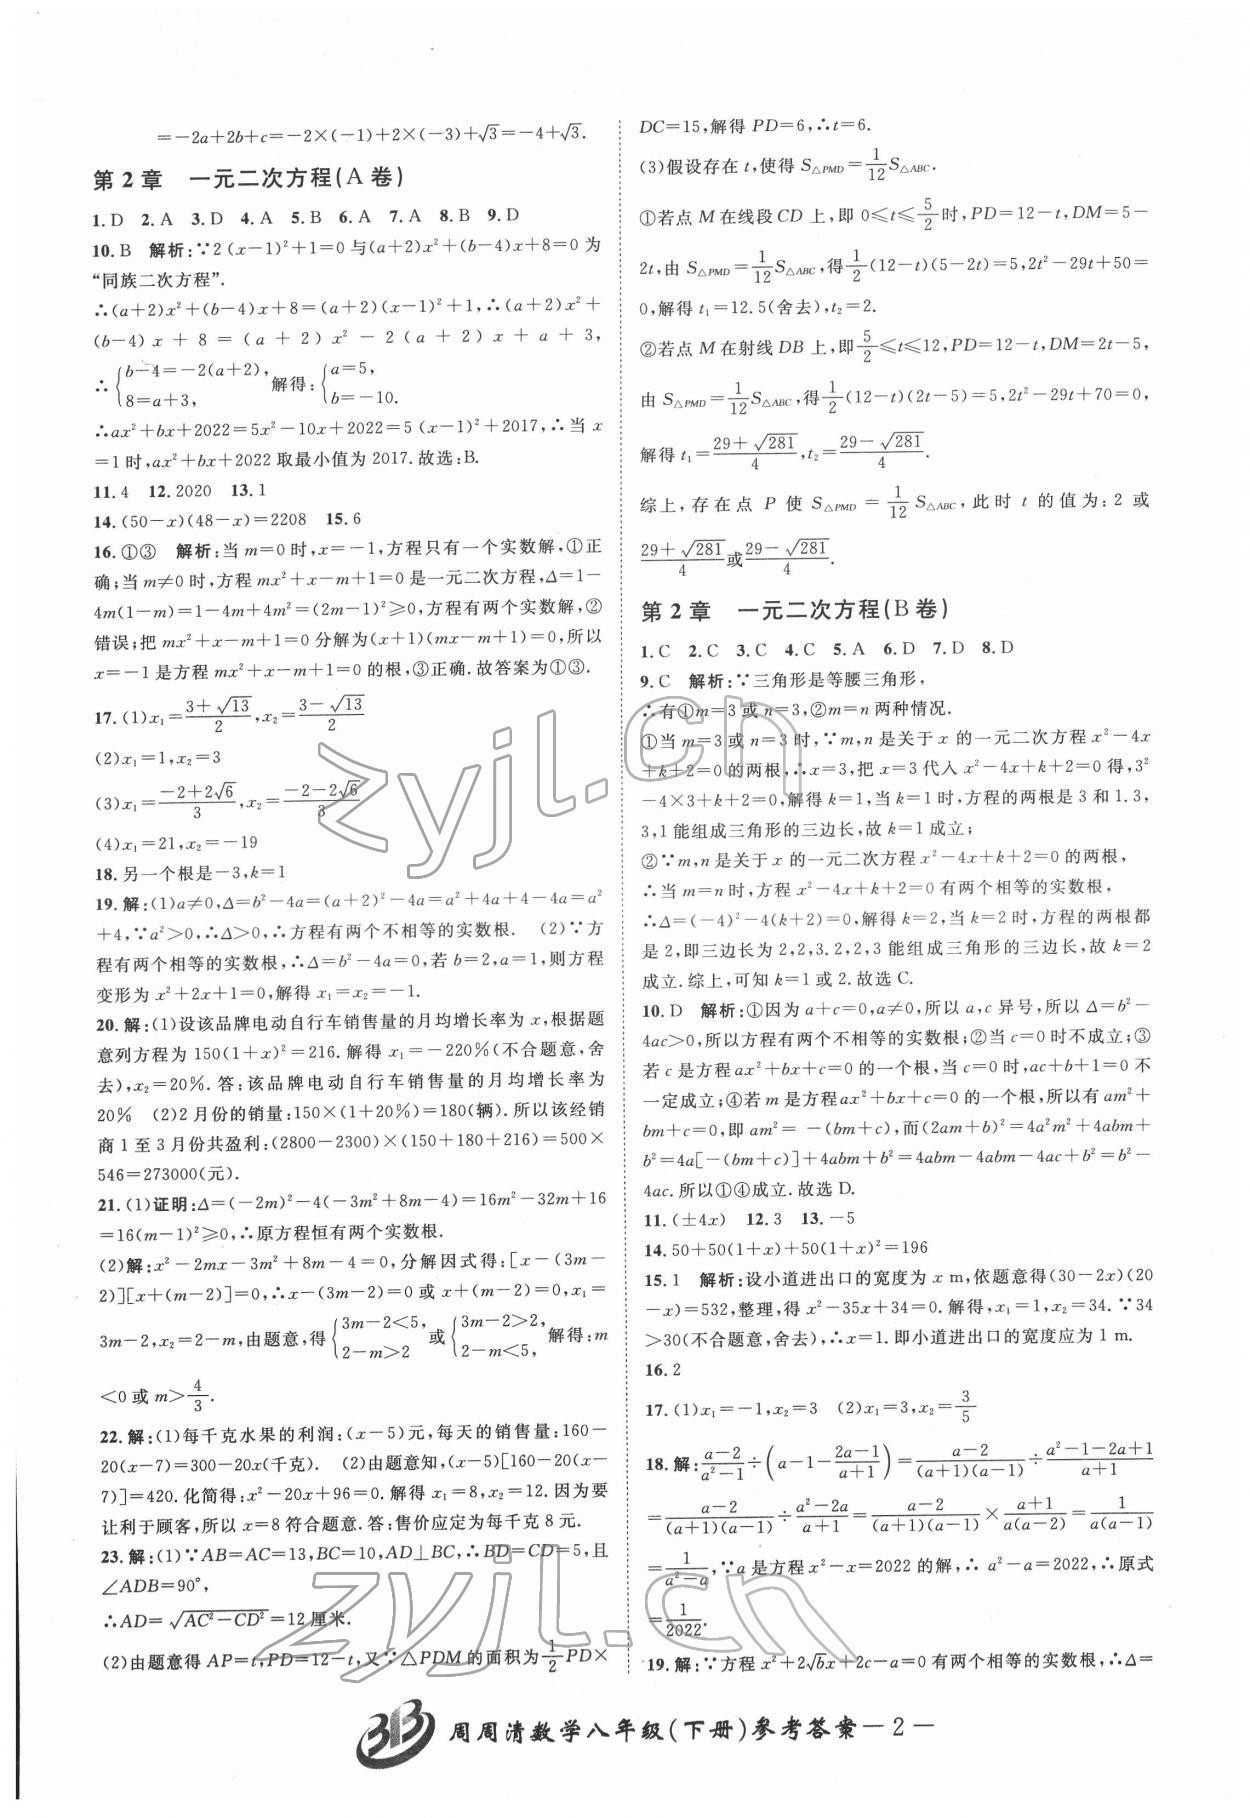 =-2a+2b+c=-2×(-1)+2×(-3)+√3=-4+√3.
第2章 一元二次方程(A卷)
1.D 2.A 3.D 4.A 5.B 6.A 7.A 8.B 9.D
10.B 解析:∵2(x-1)²+1=0与(a+2)x²+(b-4)x+8=0为
“同族二次方程”.
∴(a+2)x²+(b-4)x+8=(a+2)(x-1)²+1,∴(a+2)x²+
(b-4)x+8=(a+2)x²-2(a+2)x+a+3,
∴{b-4=-2(a+2), 8=a+3, 解得:{a=5, b=-10.
∴ax²+bx+2022=5x²-10x+2022=5(x-1)²+2017,∴当x
=1时,ax²+bx+2022取最小值为2017.故选:B.
11.4 12.2020 13.1
14.(50-x)(48-x)=2208 15.6
16.①③ 解析:当m=0时,x=-1,方程只有一个实数解,①正
确;当m≠0时,方程mx²+x-m+1=0是一元二次方程,Δ=1-
4m(1-m)=1-4m+4m²=(2m-1)²≥0,方程有两个实数解,②
错误;把mx²+x-m+1=0分解为(x+1)(mx-m+1)=0,所以
x=-1是方程mx²+x-m+1=0的根,③正确.故答案为①③.
17.(1)x₁=(3+√13)/2,x₂=(3-√13)/2
(2)x₁=1,x₂=3
(3)x₁=(-2+2√6)/3,x₂=(-2-2√6)/3
(4)x₁=21,x₂=-19
18.另一个根是-3,k=1
19.解:(1)a≠0,Δ=b²-4a=(a+2)²-4a=a²+4a+4-4a=a²
+4,∵a²>0,∴Δ>0,∴方程有两个不相等的实数根. (2)∵方
程有两个相等的实数根,∴Δ=b²-4a=0,若b=2,a=1,则方程
变形为x²+2x+1=0,解得x₁=x₂=-1.
20.解:(1)设该品牌电动自行车销售量的月均增长率为x,根据题
意列方程为150(1+x)²=216.解得x₁=-220%(不合题意,舍
去),x₂=20%.答:该品牌电动自行车销售量的月均增长率为
20% (2)2月份的销量:150×(1+20%)=180(辆).所以该经销
商1至3月份共盈利:(2800-2300)×(150+180+216)=500×
546=273000(元).
21.(1)证明:Δ=(-2m)²-4(-3m²+8m-4)=16m²-32m+16
=16(m-1)²≥0,∴原方程恒有两个实数根.
(2)解:x²-2mx-3m²+8m-4=0,分解因式得:[x-(3m-
2)][x+(m-2)]=0,∴x-(3m-2)=0或x+(m-2)=0,x₁=
3m-2,x₂=2-m,由题意,得{3m-2<5, 2-m>2 或{3m-2>2, 2-m<5, 解得:m
<0或m>4/3.
22.解:(1)每千克水果的利润:(x-5)元,每天的销售量:160-
20(x-7)=300-20x(千克). (2)由题意知,(x-5)[160-20(x-
7)]=420.化简得:x²-20x+96=0.解得x₁=8,x₂=12.因为要
让利于顾客,所以x=8符合题意.答:售价应定为每千克8元.
23.解:(1)∵AB=AC=13,BC=10,AD⊥BC,∴BD=CD=5,且
∠ADB=90°,
∴AD=√(AC²-CD²)=12厘米.
(2)由题意得AP=t,PD=12-t,又∵△PDM的面积为1/2PD×
DC=15,解得PD=6,∴t=6.
(3)假设存在t,使得S△PMD=1/12S△ABC.
①若点M在线段CD上,即0≤t≤5/2时,PD=12-t,DM=5-
2t,由S△PMD=1/12S△ABC,得1/2(12-t)(5-2t)=5,2t²-29t+50=
0,解得t₁=12.5(舍去),t₂=2.
②若点M在射线DB上,即5/2≤t≤12,PD=12-t,DM=2t-5,
由S△PMD=1/12S△ABC,得1/2(12-t)(2t-5)=5,2t²-29t+70=0,
解得t₁=(29+√281)/4,t₂=(29-√281)/4.
综上,存在点P使S△PMD=1/12S△ABC,此时t的值为:2或
(29+√281)/4或(29-√281)/4.
第2章 一元二次方程(B卷)
1.C 2.C 3.C 4.C 5.A 6.D 7.D 8.D
9.C 解析:∵三角形是等腰三角形,
∴有①m=3或n=3,②m=n两种情况.
①当m=3或n=3时,∵m,n是关于x的一元二次方程x²-4x
+k+2=0的两根,∴x=3,把x=3代入x²-4x+k+2=0得,3²
-4×3+k+2=0,解得k=1,当k=1时,方程的两根是3和1.3,
3,1能组成三角形的三边长,故k=1成立;
②∵m,n是关于x的一元二次方程x²-4x+k+2=0的两根,
∴当m=n时,方程x²-4x+k+2=0有两个相等的实数根,
∴Δ=(-4)²-4(k+2)=0,解得k=2,当k=2时,方程的两根都
是2,即三边长为2,2,3.2,2,3能组成三角形的三边长,故k=2
成立.综上,可知k=1或2.故选C.
10.D 解析:①因为a+c=0,a≠0,所以a,c异号,所以Δ=b²-
4ac>0,所以方程有两个不相等的实数根;②当c=0时不成立;③
若c是方程ax²+bx+c=0的一个根,当c=0时,ac+b+1=0不
一定成立;④若m是方程ax²+bx+c=0的一个根,所以有am²+
bm+c=0,即am²=-(bm+c),而(2am+b)²=4a²m²+4abm+
b²=4a[-(bm+c)]+4abm+b²=4abm-4abm-4ac+b²=b²-
4ac.所以①④成立.故选D.
11.(±4x) 12.3 13.-5
14.50+50(1+x)+50(1+x)²=196
15.1 解析:设小道进出口的宽度为x m,依题意得(30-2x)(20
-x)=532,整理,得x²-35x+34=0.解得,x₁=1,x₂=34.∵34
>30(不合题意,舍去),∴x=1.即小道进出口的宽度应为1 m.
16.2
17.(1)x₁=-1,x₂=3 (2)x₁=3,x₂=3/5
18.解:(a-2)/(a²-1)÷(a-1-(2a-1)/(a+1))=(a-2)/((a+1)(a-1))÷(a²-1-2a+1)/(a+1)
=(a-2)/((a+1)(a-1))÷(a²-2a)/(a+1)=(a-2)/((a+1)(a-1))×(a+1)/(a(a-2))=1/(a(a-1))
=1/(a²-a),∵a是方程x²-x=2022的解,∴a²-a=2022,∴原式
=1/2022.
19.解:∵方程x²+2√bx+2c-a=0有两个相等的实数根,∴Δ=
周周清数学八年级(下册)参考答案-2-
zyjl.cn
zyjl.cn